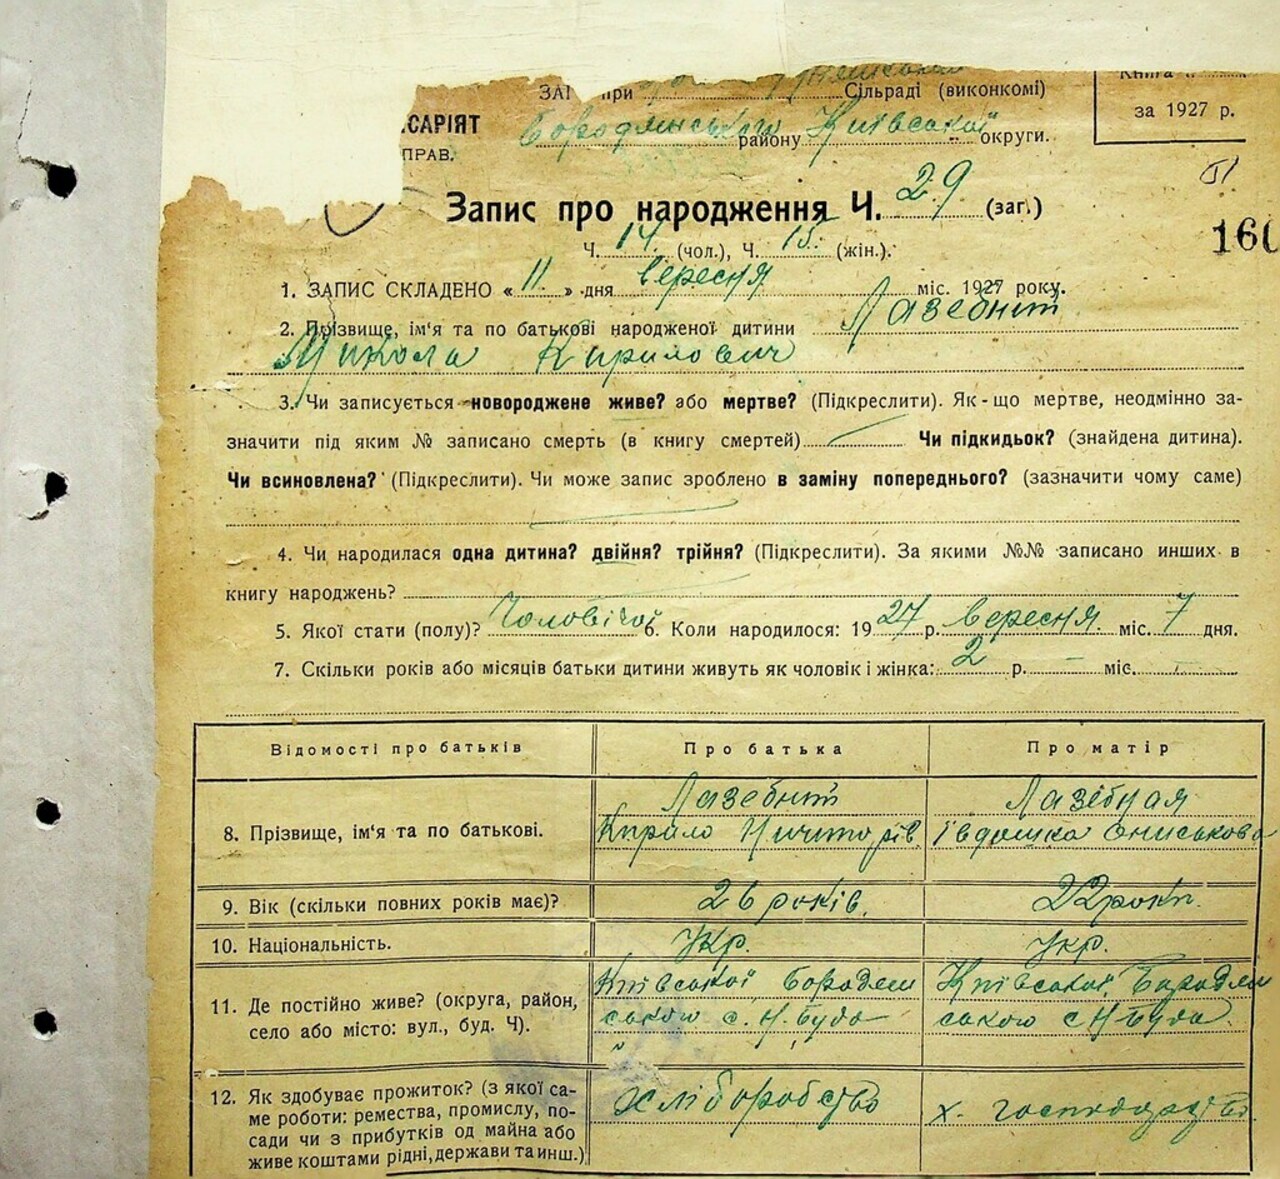 ЗАГ при Сільраді (виконкомі)
Книга
САРІЯТ
Бородянського району Київської округи.
за 1927 р.
ПРАВ.
Запис про народження Ч. 29 (заг.)
160
Ч. 14 (чол.), Ч. 15 (жін.).
1. ЗАПИС СКЛАДЕНО « 11 » дня вересня міс. 1927 року.
2. Прізвище, ім'я та по батькові народженої дитини Лазебний
Микола Кирилович
3. Чи записується новороджене живе? або мертве? (Підкреслити). Як-що мертве, неодмінно за-
значити під яким № записано смерть (в книгу смертей) Чи підкидьок? (знайдена дитина).
Чи всиновлена? (Підкреслити). Чи може запис зроблено в заміну попереднього? (зазначити чому саме)
4. Чи народилася одна дитина? двійня? трійня? (Підкреслити). За якими №№ записано инших в
книгу народжень?
5. Якої стати (полу)? Чоловічої 6. Коли народилося: 1927 р. вересня міс. 7 дня.
7. Скільки років або місяців батьки дитини живуть як чоловік і жінка: 2 р. — міс. —
Відомості про батьків Про батька Про матір
8. Прізвище, ім'я та по батькові.
Лазебний
Кирило
Лазебная
Івдошка Ониськова
9. Вік (скільки повних років має)? 26 років. 22 роки.
10. Національність. Укр. укр.
11. Де постійно живе? (округа, район,
село або місто: вул., буд. Ч).
Київської, Бородян
ського с. Н. Буда
Київської, Бородян
ського с Н-Буда
12. Як здобуває прожиток? (з якої са-
ме роботи: ремества, промислу, по-
сади чи з прибутків од майна або
живе коштами рідні, держави та инш.)
хліборобство
х. господарство.